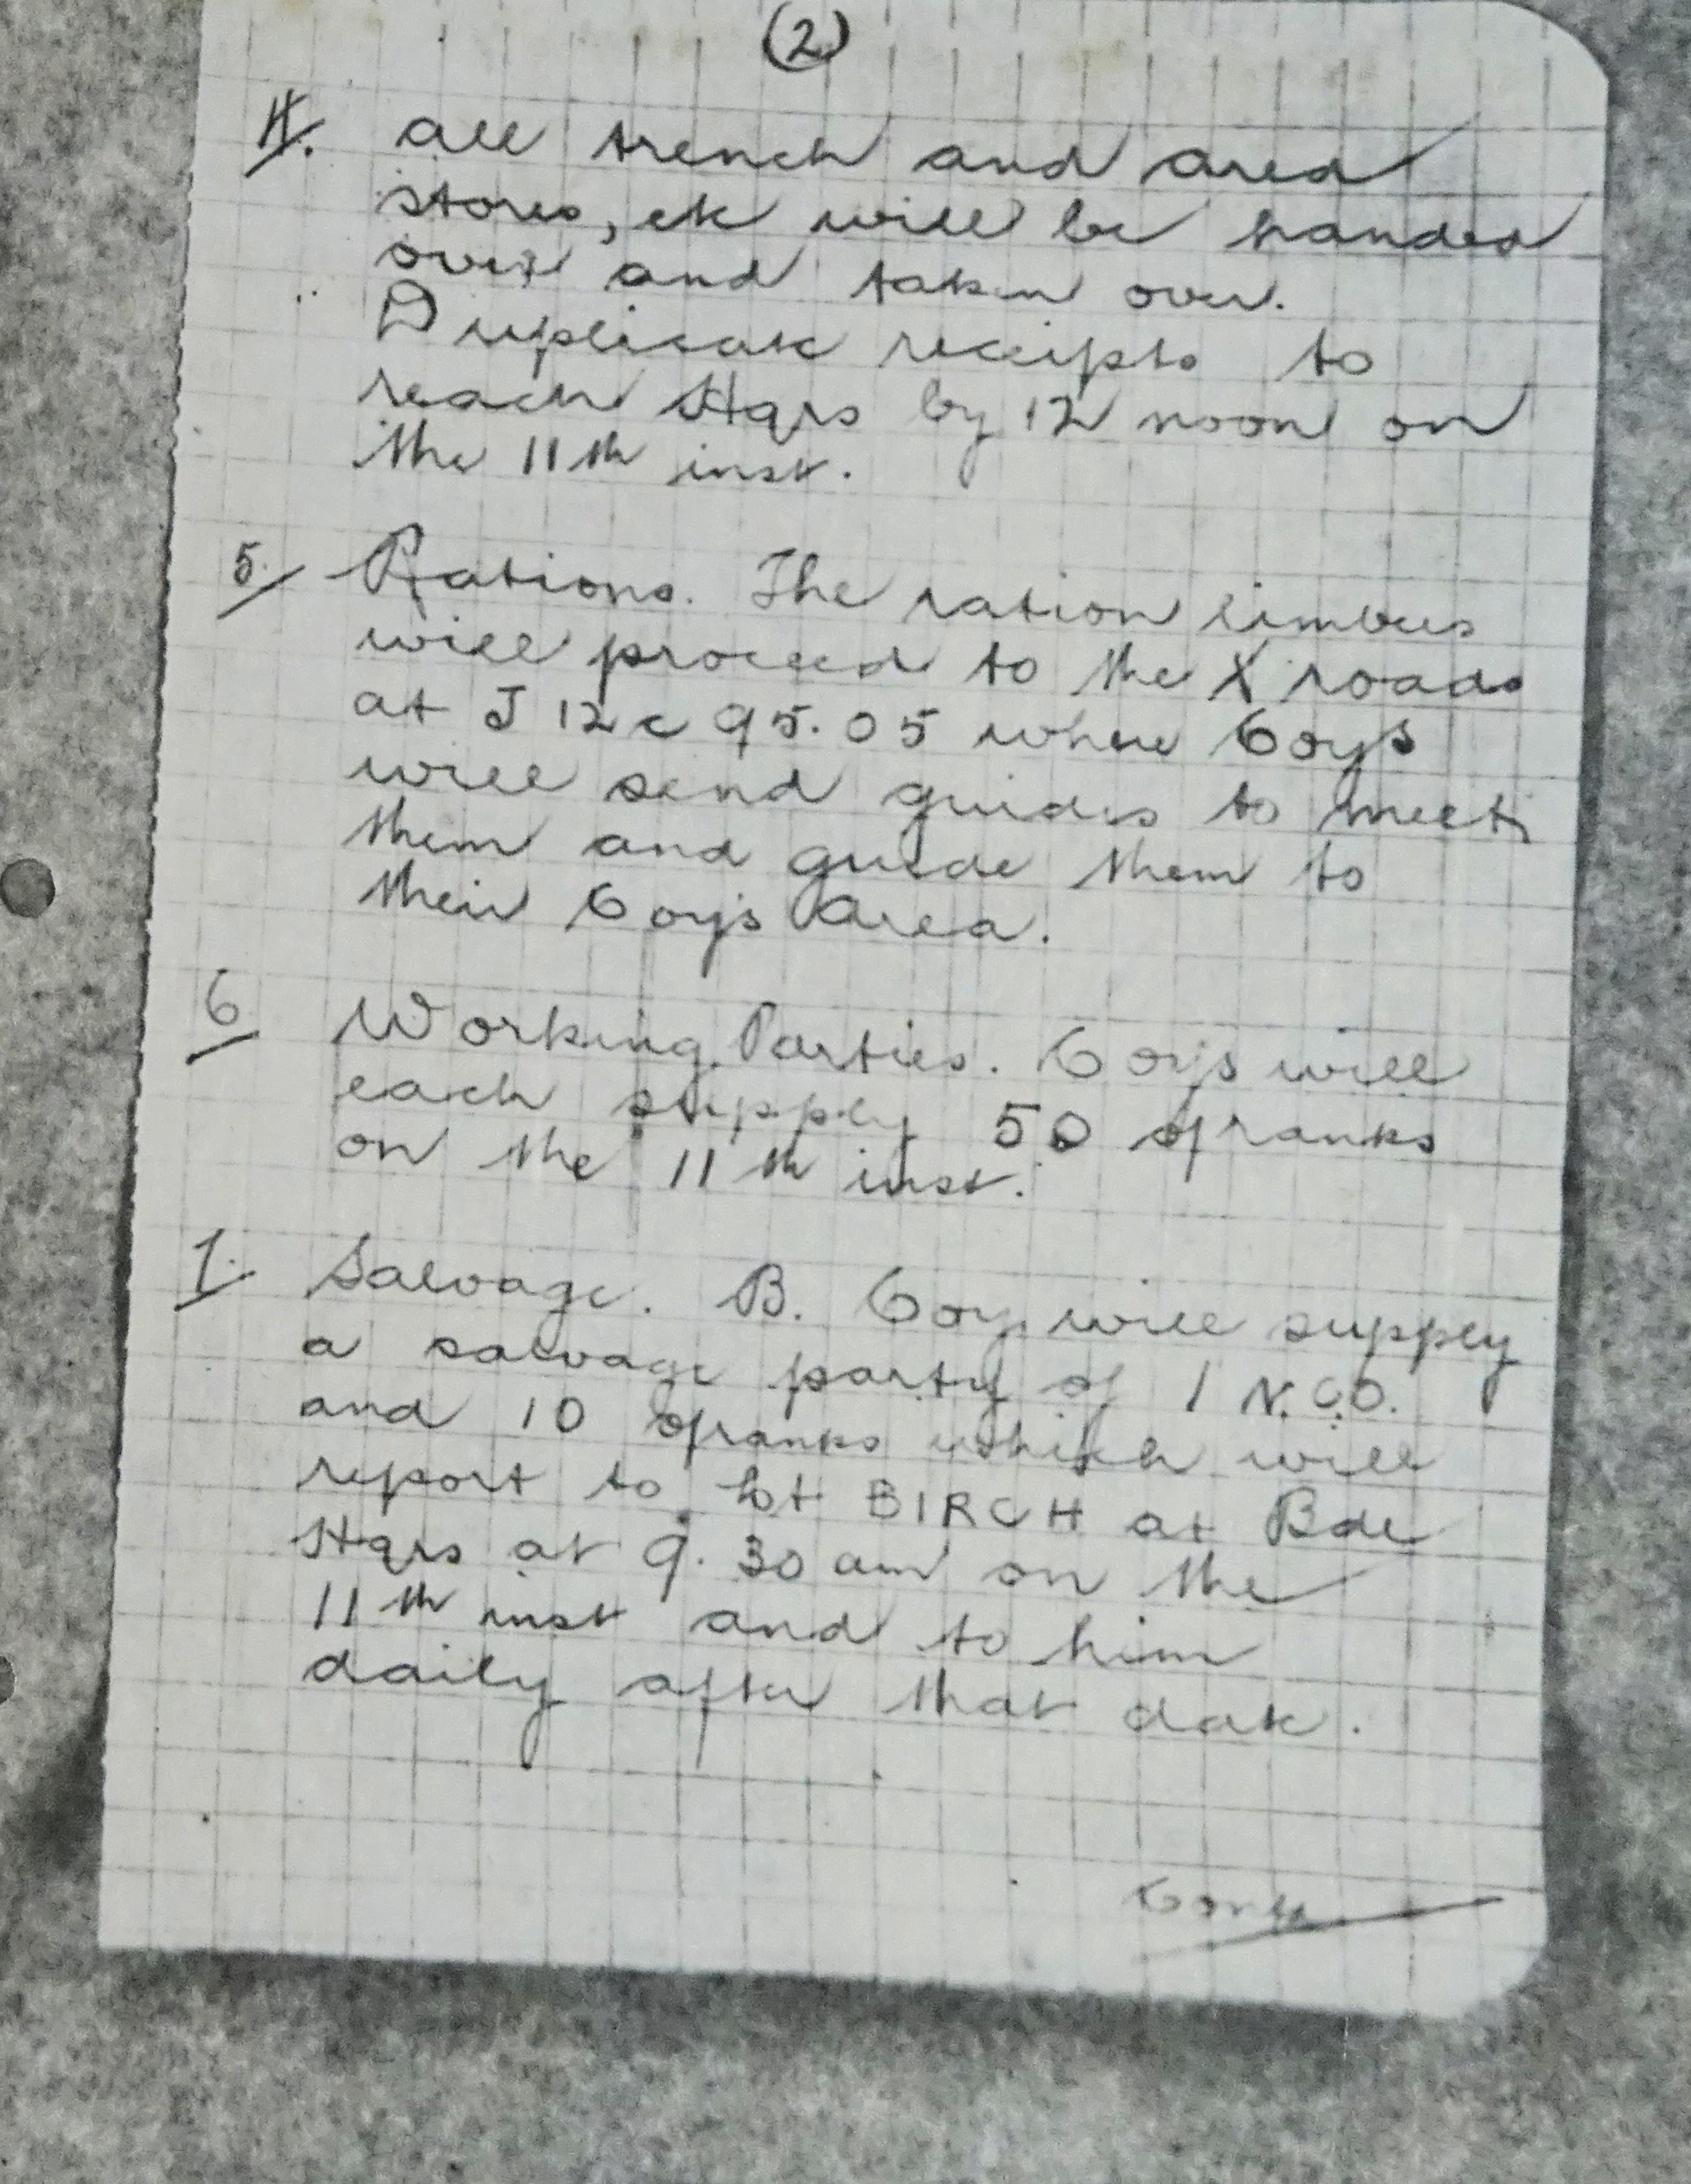 (2)
4. All trench and area
stores, etc will be handed
over and taken over.
Duplicate receipts to
reach Hqrs by 12 noon on
the 11th inst.
5. Rations. The ration limbers
will proceed to the X roads
at J 12 c 95.05 where Coys
will send guides to meet
them and guide them to
their Coys Area.
6 Working Parties. Coys will
each supply 50 ranks
on the 11th inst.
7. Salvage. B. Coy. will supply
a salvage party of 1 N.C.O.
and 10 ranks which will
report to Lt BIRCH at Bde
Hqrs at 9.30 am on the
11th inst and to him
daily after that date.